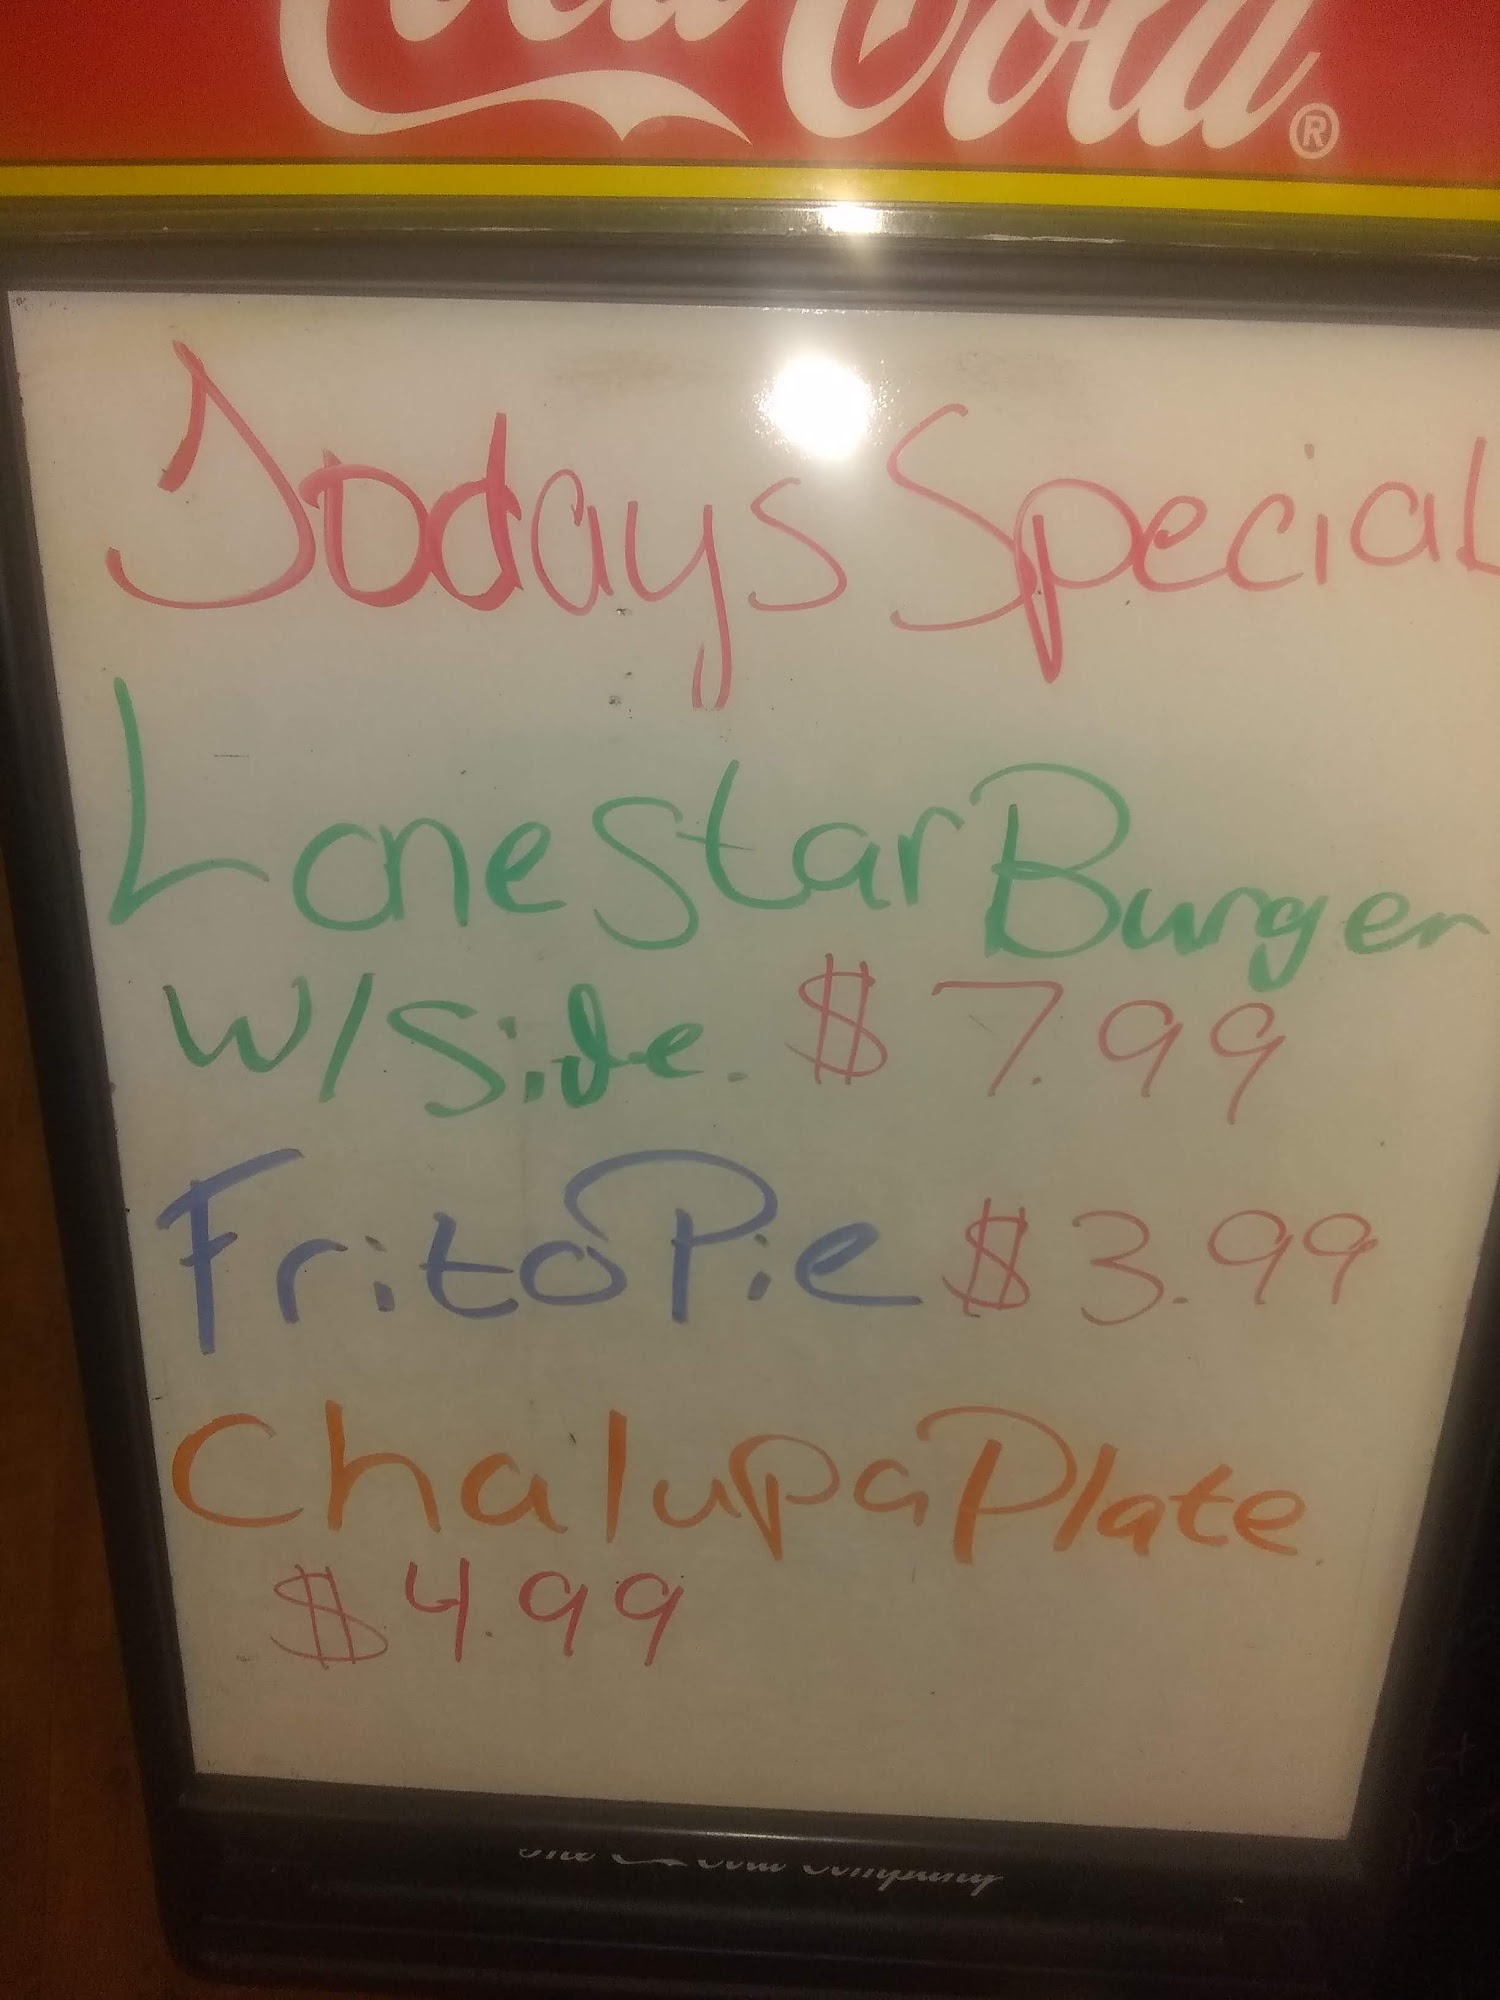 Coca-Cola®
Todays Special
Lone Star Burger
W/Side. $7.99
Frito Pie $3.99
Chalupa Plate
$4.99
The Coca-Cola Company